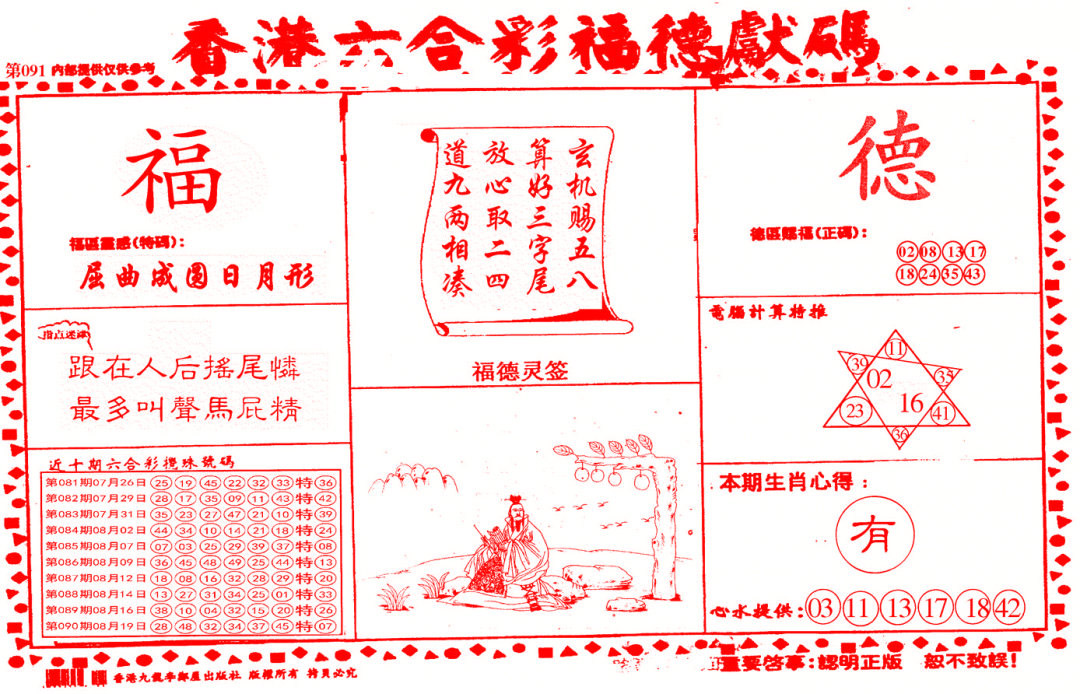 香港六合彩福德獻碼
第091 内部提供仅供参考
福
福區靈感(特碼):
屈曲成圆日月形
指点迷津
跟在人后搖尾憐
最多叫聲馬屁精
近十期六合彩攪珠號碼
第081期07月26日 25 19 45 22 32 33 特 36
第082期07月29日 28 17 35 09 11 43 特 42
第083期07月31日 35 23 27 47 21 10 特 39
第084期08月02日 44 34 10 14 21 18 特 24
第085期08月07日 07 03 25 29 39 37 特 08
第086期08月09日 36 45 48 49 25 44 特 13
第087期08月12日 18 08 16 32 28 29 特 20
第088期08月14日 13 27 31 34 25 01 特 33
第089期08月16日 38 10 04 32 15 20 特 26
第090期08月19日 28 48 32 34 37 45 特 07
玄机赐五八
算好三字尾
放心取二四
道九两相凑
福德灵签
德
德區賜福(正碼):
02 08 13 17
18 24 35 43
電腦計算特推
11
39
02
35
23
16
41
36
本期生肖心得:
有
心水提供:03 11 13 17 18 42
香港九龍李鄭屋出版社 版權所有 拷貝必究
重要啓事:認明正版 恕不致誤!